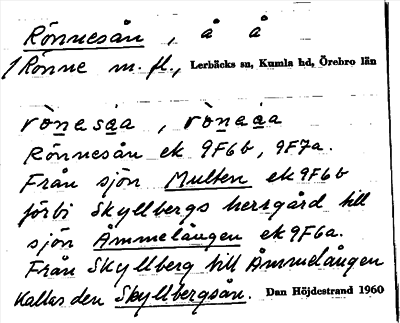 Rönnesån, å å
1 Rönne m. fl., Lerbäcks sn, Kumla hd, Örebro län
rònesa̲a, rònaa̲a
Rönnesån ek 9F6b, 9F7a.
Från sjön Multen ek 9F6b
förbi Skyllbergs herrgård till
sjön Åmmelången ek 9F6a.
Från Skyllberg till Åmmelången
kallas den Skyllbergsån. Dan Höjdestrand 1960